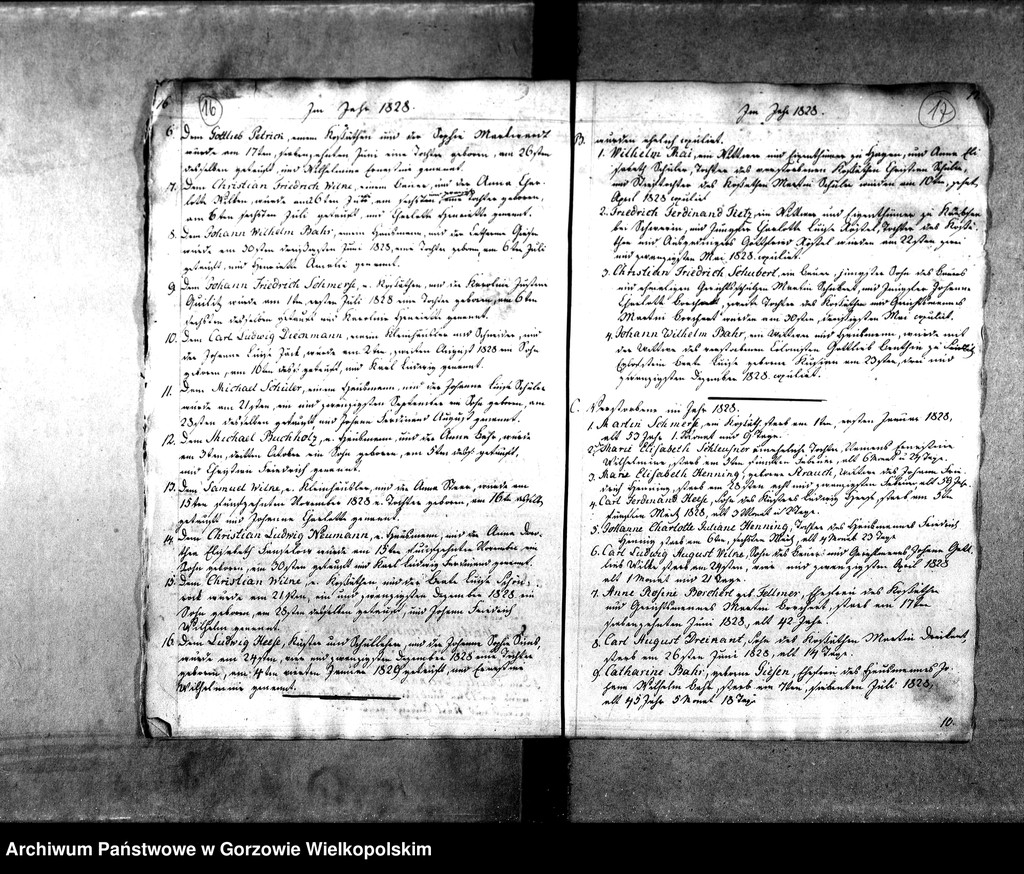 16
Im Jahr 1828.
6. Dem Gottlieb Petrick, einem Kossäthen und der Sophie
wurde am 17ten, siebenzehnten Juni eine Tochter geboren, am 26sten
desselben getauft, und Wilhelmine Ernestine genannt.
7. Dem Christian Friedrich Wilke, einem Bauer, und der Anna Char-
lotte am 26ten eine Tochter geboren,
am 6ten sechsten Juli getauft, und Charlotte Henriette genannt.
8. Dem Johann Wilhelm Bahr, einem Häusmann, und der Catharine
wurde am 30sten dreißigsten Juni 1828, eine Tochter geboren am 6ten Juli
getauft, und Henriette Amalie genannt.
9. Dem Johann Friedrich Schmerse, e. Kossäthen, und der Karoline Justine
wurde am 1ten ersten Juli 1828 eine Tochter geboren, am 6ten
sechsten desselben getauft und Karoline Henriette genannt.
10. Dem Carl Ludwig einem Kleinhäusler und Schneider, und
der Johanne Luise wurde am 2ten, zweiten August 1828 ein Sohn
geboren, am 10ten getauft, und Karl Ludwig genannt.
11. Dem Michael Schüler, einem Häusmann, und der Johanne Luise Schüler
wurde am 21sten, ein und zwanzigsten September ein Sohn geboren, am
28sten desselben getauft und Johann Ferdinand August genannt.
12. Dem Michael Buchholz, e. Häusmann, und der Anna wurde
am 3ten, dritten October ein Sohn geboren, am 5ten getauft,
und Christian Friedrich genannt.
13. Dem Samuel Wilke, e. Kleinhäusler, und der Anna wurde am
15ten funfzehnten November 1828 e. Tochter geboren, am 16ten
getauft und Johanne Charlotte genannt.
14. Dem Christian Ludwig Neumann, e. Häusmann, und der Anna Doro-
thee Elisabeth wurde am 15ten funfzehnten November ein
Sohn geboren, am 30sten getauft und Karl Ludwig Ferdinand genannt.
15. Dem Christian Wilke, e. Kossäthen und der Beate Luise
wurde am 21sten, ein und zwanzigsten Dezember 1828 ein
Sohn geboren, am 28sten desselben getauft, und Johann Friedrich
Wilhelm genannt.
16. Dem Ludwig Heese, Küster und Schullehrer, und der Johanne Sophie
wurde am 24sten, vier und zwanzigsten Dezember 1828 eine Tochter
geboren, am 4ten vierten Januar 1829 getauft, und Ernestine
Wilhelmine genannt.
17
Im Jahr 1828.
B. wurden ehelich copulirt.
1. Wilhelm Rai, ein Wittwer und Eigenthümer zu Hagen, und Anne Eli-
sabeth Schüler, Tochter des verstorbenen Kossäthen Christian Schüler,
und Stieftochter des Kossäthen Martin Schüler wurden am 10ten, zehnten
April 1828 copulirt
2. Friedrich Ferdinand Tietz, ein Wittwer und Eigenthümer zu
bei Schwerin, und Jungfer Charlotte Luise Tochter des Kossä-
then und Gottfried wurden am 22sten zwei
und zwanzigsten Mai 1828 copulirt.
3. Christian Friedrich Schubert, ein Bauer, jüngster Sohn des Bauers
und ehemaligen Martin Schubert, und Jungfer Johanne
Charlotte Borchert, Tochter des Kossäthen und Gerichtsmannes
Martin Borchert wurden am 30sten, dreißigsten Mai copulirt.
4. Johann Wilhelm Bahr, ein Wittwer und Häusmann, wurde mit
der Wittwe des verstorbenen Colonisten Gottlieb zu
Beate Luise geborne am 23sten, drei und
zwanzigsten Dezember 1828 copulirt.
C. Verstorbene im Jahr 1828.
1. Martin Schmerse, ein Kossäth, starb am 1ten, ersten Januar 1828,
alt 53 Jahr 1 Monat und 9 Tage.
2. Marie Elisabeth Schleusner uneheliche Tochter, Namens Ernestine
Wilhelmine, starb am 5ten fünften Februar, alt 6 Monat 24 Tage.
3. Marie Elisabeth Henning, geborne Strauch, Wittwe des Johann Frie-
drich Henning, starb am 28sten acht und zwanzigsten Februar, alt 59 Jahr.
4. Carl Ferdinand Heese, Sohn des Küsters Ludwig Heese, starb am 5ten
fünften März 1828, alt 3 Woch. u. 2 Tage.
5. Johanne Charlotte Juliane Henning, Tochter des Häusmannes Friedrich
Henning starb am 6ten, sechsten März, alt 4 Monat 23 Tage
6. Carl Ludwig August Wilke, Sohn des Bauers und Gerichtsmannes Johann Gott-
lieb Wilke, starb am 24sten, vier und zwanzigsten April 1828
alt 1 Monat und 21 Tage.
7. Anne Rosine Borchert geb. Fellmer, Ehefrau des Kossäthen
und Gerichtsmannes Martin Borchert, starb am 17ten
siebenzehnten Juni 1828, alt 42 Jahr.
8. Carl August Sohn des Kossäthen Martin
starb am 26sten Juni 1828, alt 14 Tage.
9. Catharine Bahr, geborne Giesen, Ehefrau des Häusmannes Jo-
hann Wilhelm Bahr, starb am 7ten, siebenten Juli 1828,
alt 45 Jahr 5 Monat 18 Tage.
10.
Archiwum Państwowe w Gorzowie Wielkopolskim